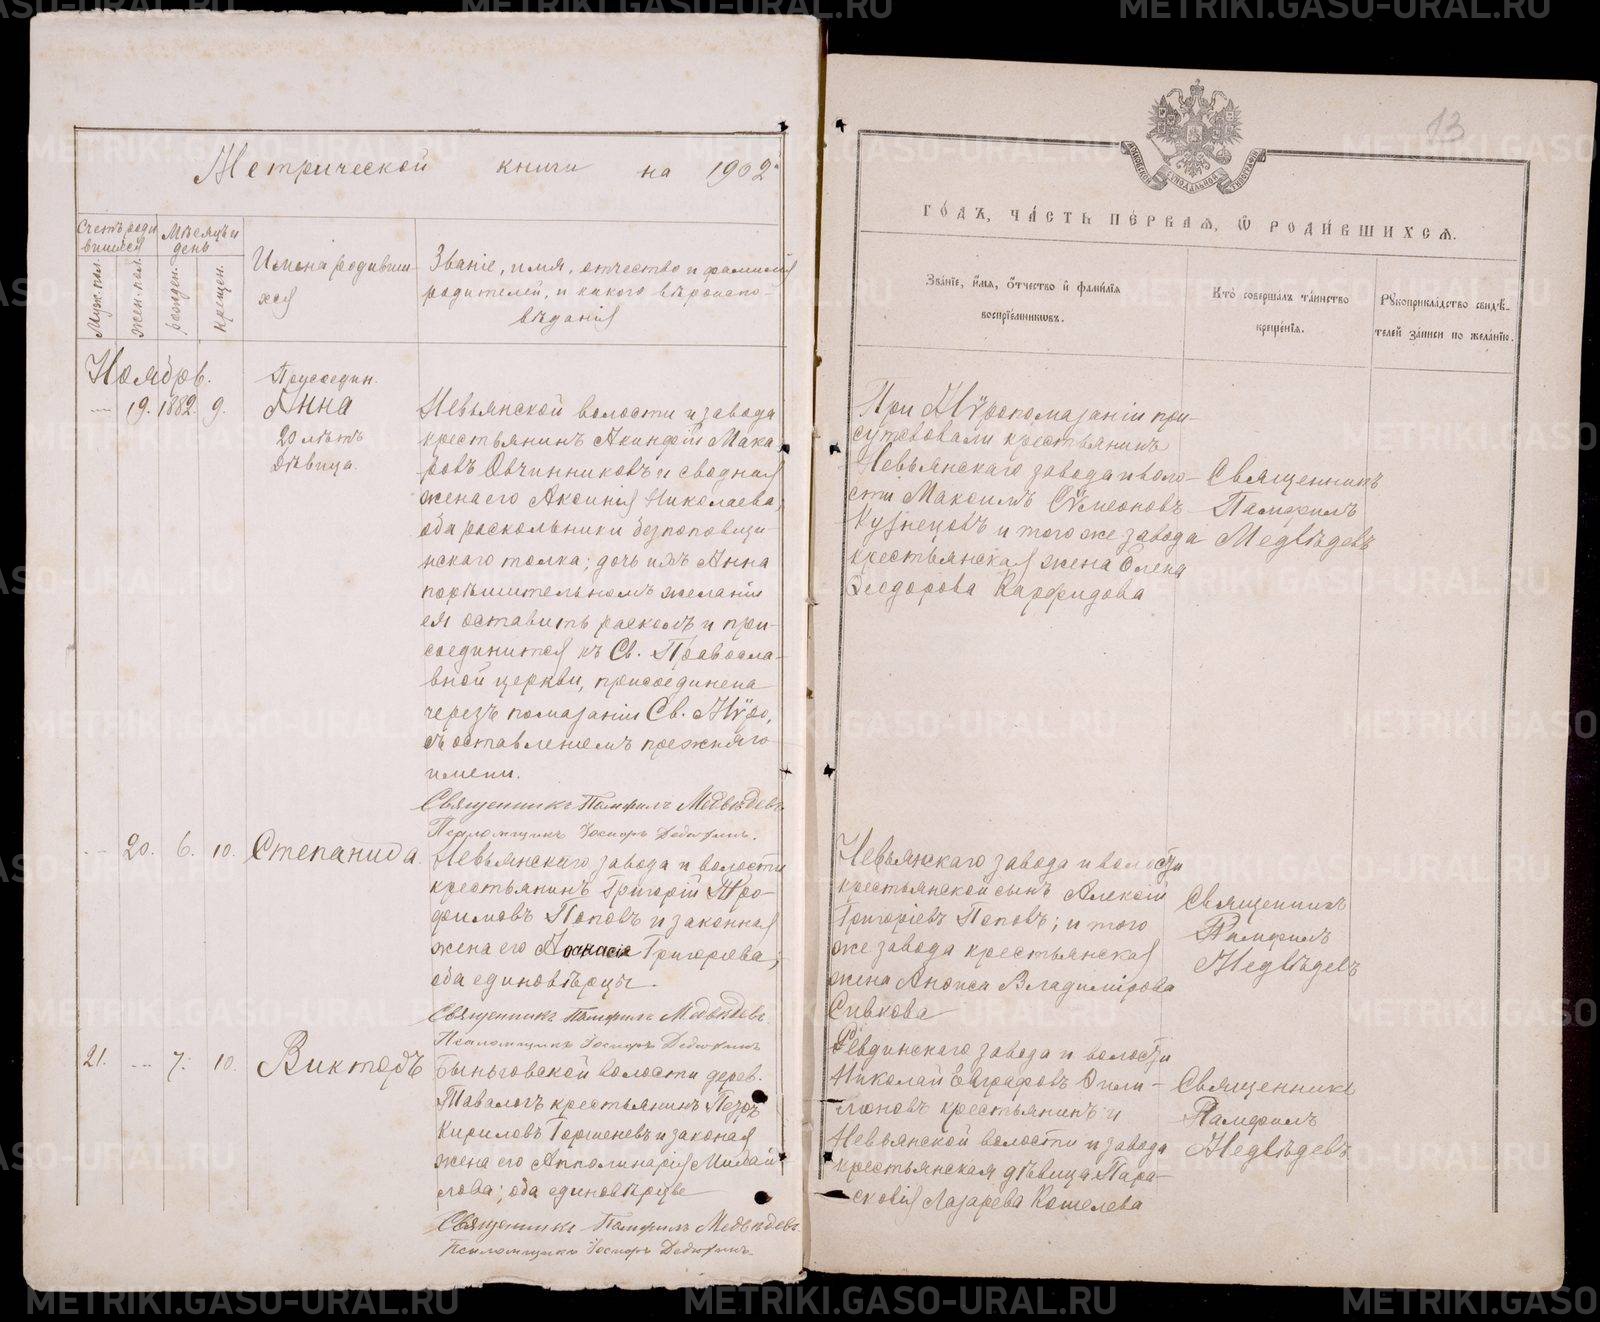 Метрической книги на 1902й
Счетъ роди
вшихся
Мѣсяцъ и
день
Муж. пол.
Жен. пол.
рожден.
крещен.
Имена родивши-
хся
Званіе, имя, отчество и фамилія
родителей, и какого вѣроиспо-
вѣданія
Ноябрь.
Присоедин.
— 19. 1882. 9. Анна
20 лѣтъ
дѣвица.
Невьянской волости и завода
крестьянинъ Акинфій Мака-
ровъ Овчинниковъ и сводная
жена его Аксинія Николаева,
оба раскольники безпоповщи-
нскаго толка; дочь ихъ Анна
по рѣшительномъ желаніи
ея оставить расколъ и при-
соединится къ Св. Православ-
вной церкви, присоединена
черезъ помазаніи Св. Мѵро,
съ оставленіемъ прежняго
имени.
Священникъ Памфилъ Медвѣдевъ
Псаломщикъ Іосифъ Дедюхинъ.
— 20. 6. 10. Степанида.
Невьянскаго завода и волости
крестьянинъ Григорій Тро-
фимовъ Поповъ и законная
жена его Афанасія Григорьева;
оба единовѣрцы.
Священникъ Памфилъ Медвѣдевъ
Псаломщикъ Іосифъ Дедюхинъ
21. — 7. 10. Викторъ
Быньговской волости дерев.
Таваложъ крестьянинъ Петръ
Кириловъ Горшеневъ и законая
жена его Апполинарія Михай-
лова; оба единовѣрцы
Священникъ Памфилъ Медвѣдевъ
Псаломщикъ Іосифъ Дедюхинъ.
13
МОСКОВСКОЙ СѴНОДАЛЬНОЙ ТИПОГРАФІИ
ГО́ДЪ, ЧА́СТЬ ПЕ́РВАЯ, Ѿ РОДИ́ВШИХСЯ.
Зва́ніе, и́мя, о́тчество и фами́лія
воспріе́мниковъ.
Кто̀ соверша́лъ та́инство
креще́нія.
Рукоприкла́дство свидѣ́-
телей за́писи по жела́нію.
При Мѵропомазаніи при-
сутсвовали крестьянинъ
Невьянскаго завода и воло-
сти Максимъ Сѵмеоновъ
Кузнецовъ и того же завода
крестьянская жена Елена
Ѳеодорова Карфидова
Священникъ
Памфилъ
Медвѣдевъ
Невьянскаго завода и волости
крестьянской сынъ Алексій
Григоріевъ Поповъ; и того
же завода крестьянская
жена Анфиса Владимірова
Сивкова
Священникъ
Памфилъ
Медвѣдевъ
Ревдинскаго завода и волости
Николай Евграфовъ Фили-
моновъ крестьянинъ и
Невьянской волости и завода
крестьянская дѣвица Пара-
сковія Лазарева Кошелева
Священникъ
Памфилъ
Медвѣдевъ
METRIKI.GASO-URAL.RU